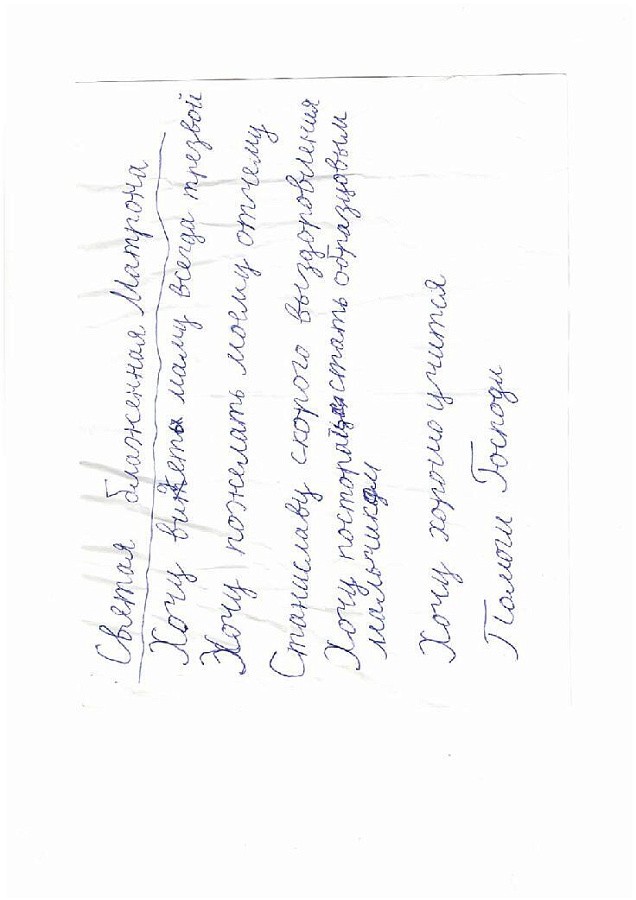 Святая блаженная Матрона
Хочу видеть маму всегда трезвой
Хочу пожелать моему отчему
Станиславу скорого выздоровления
Хочу стать образцовым
мальчиком
Хочу хорошо учится
Памоги Господи